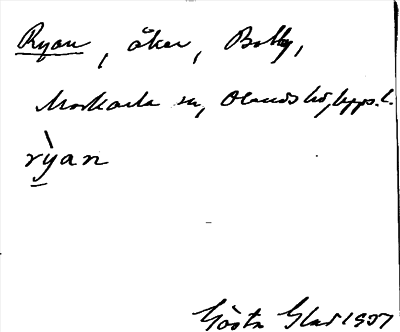 Ryan, åker, Bolby,
Markarla sn, Olands hd, Upps. l.
rỳan
Gösta Glad 1937